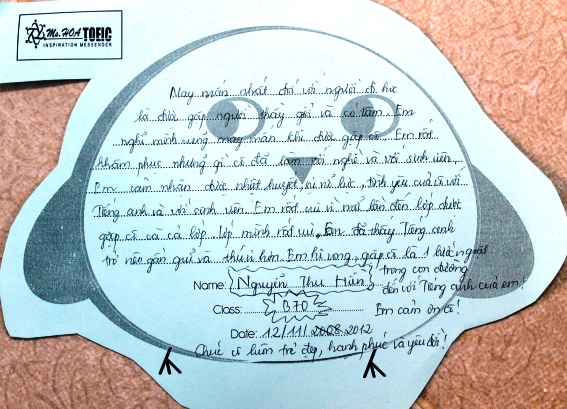 Ms. HOA TOEIC
INSPIRATION MESSENGER
May mắn nhất đối với người đi học
là được gặp người thầy giỏi và có tâm. Em
nghĩ mình cũng may mắn khi được gặp cô. Em rất
khâm phục những gì cô đã làm với nghề và với sinh viên.
Em cảm nhận được nhiệt huyết, sự nỗ lực, tình yêu của cô với
Tiếng anh và với sinh viên. Em rất vui vì mỗi lần đến lớp được
gặp cô và cả lớp. Lớp mình rất vui. Em đã thấy Tiếng anh
trở nên gần gũi và thú vị hơn. Em hi vọng, gặp cô là 1 bước ngoặt
trong con đường
Name: Nguyễn Thu Hiền
đến với Tiếng anh của em!
Class: B70
Em cảm ơn cô!
Date: 12/11/2008 2012
Chúc cô luôn trẻ đẹp, hạnh phúc và yêu đời!